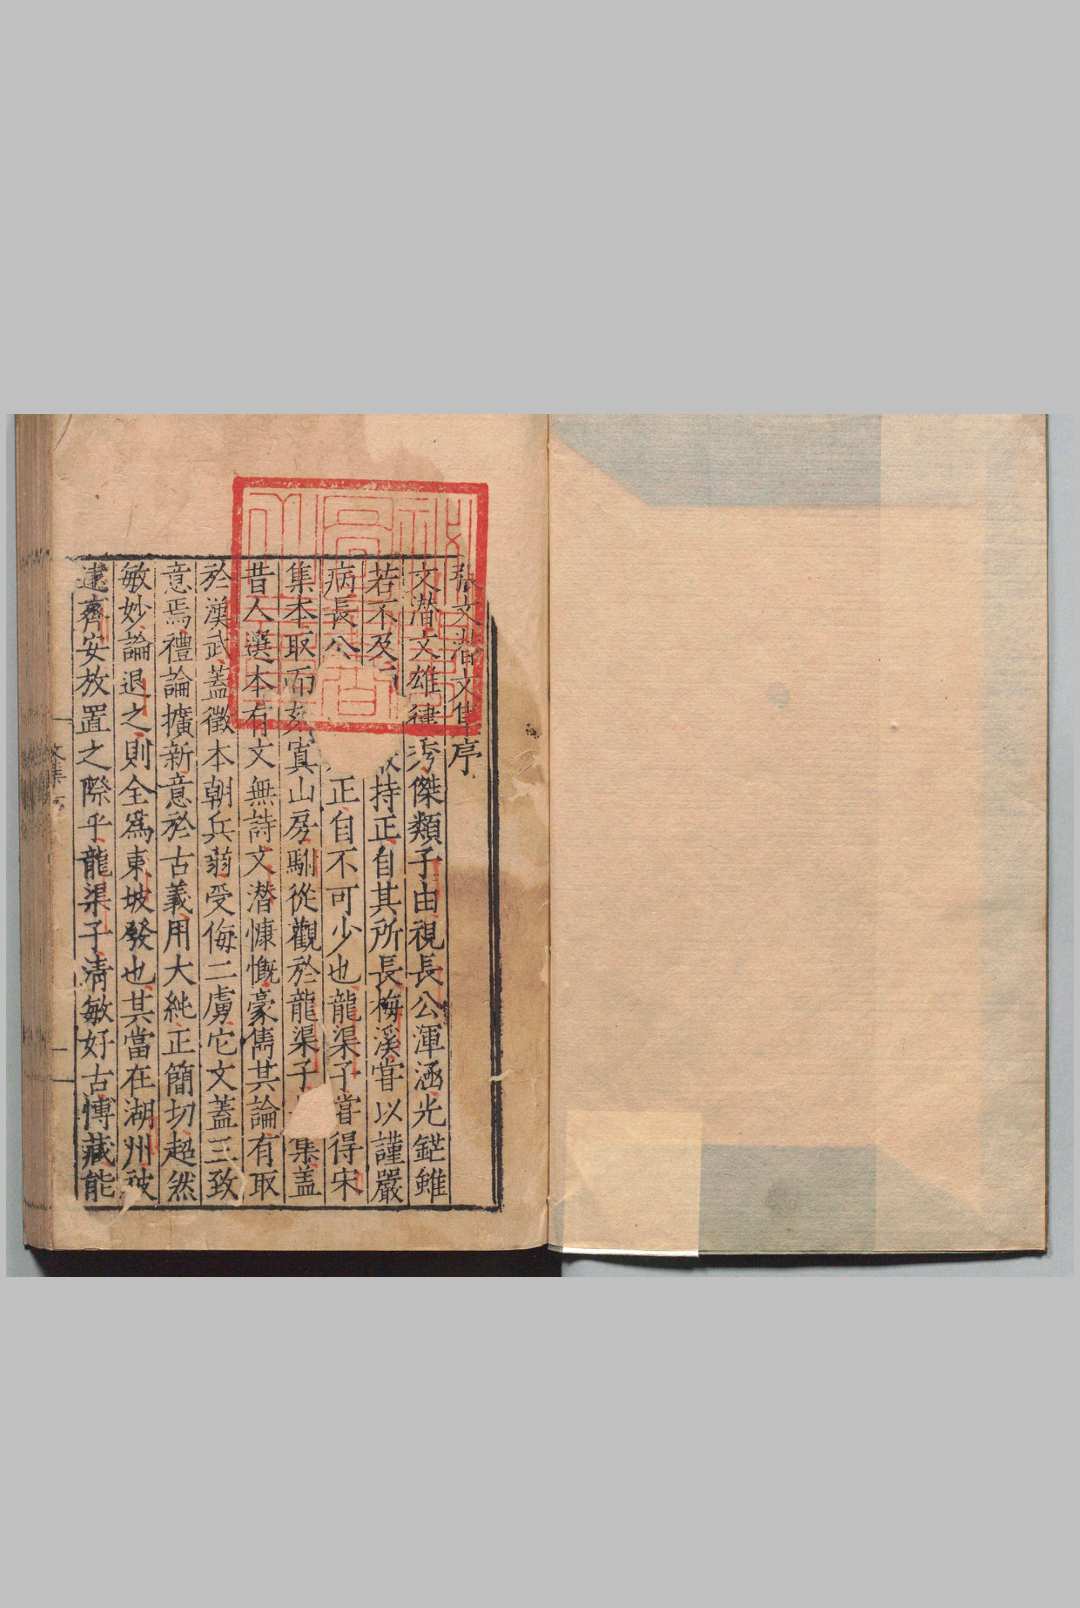 張文潛文集序
文潛文雄健秀傑類子由視長公渾涵光鋩雖
若不及 持正自其所長梅溪嘗以謹嚴
病長公 正自不可少也龍渠子嘗得宋
集本取而刻寘山房駙從觀於龍渠子 集蓋
昔人選本有文無詩文潛慷慨豪雋其論有取
於漢武蓋徵本朝兵蒻受侮二虜它文蓋三致
意焉禮論擴新意於古義用大純正簡切超然
敏妙論退之則全爲東坡發也其當在湖州被
逮齊安放置之際乎龍渠子清敏好古博藏能
文集序